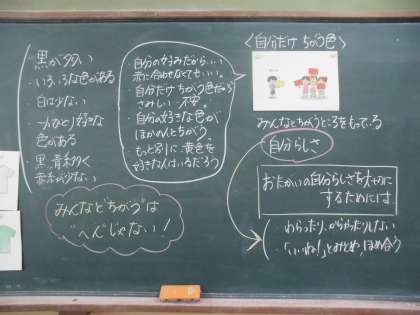 ・黒が多い
・いろいろな色がある
・白は少ない
・一人ひとり好きな
色がある
・黒、青系が多く
赤系が少ない
・自分の好みだからいい
赤に合わせなくてもいい。
・自分だけちがう色だから
さみしい・不安。
・自分の好きな色が
ほかの人とちがう。
・もっと別に黄色を
好きな人はいるだろう
みんなと"ちがう"は
"へん"じゃない!
〈自分だけちがう色〉
みんなとちがうところをもっている
自分らしさ
おたがいの自分らしさを大切に
するためには
・わらったり、からかったりしない
・「いいね!」とみとめ、ほめ合う